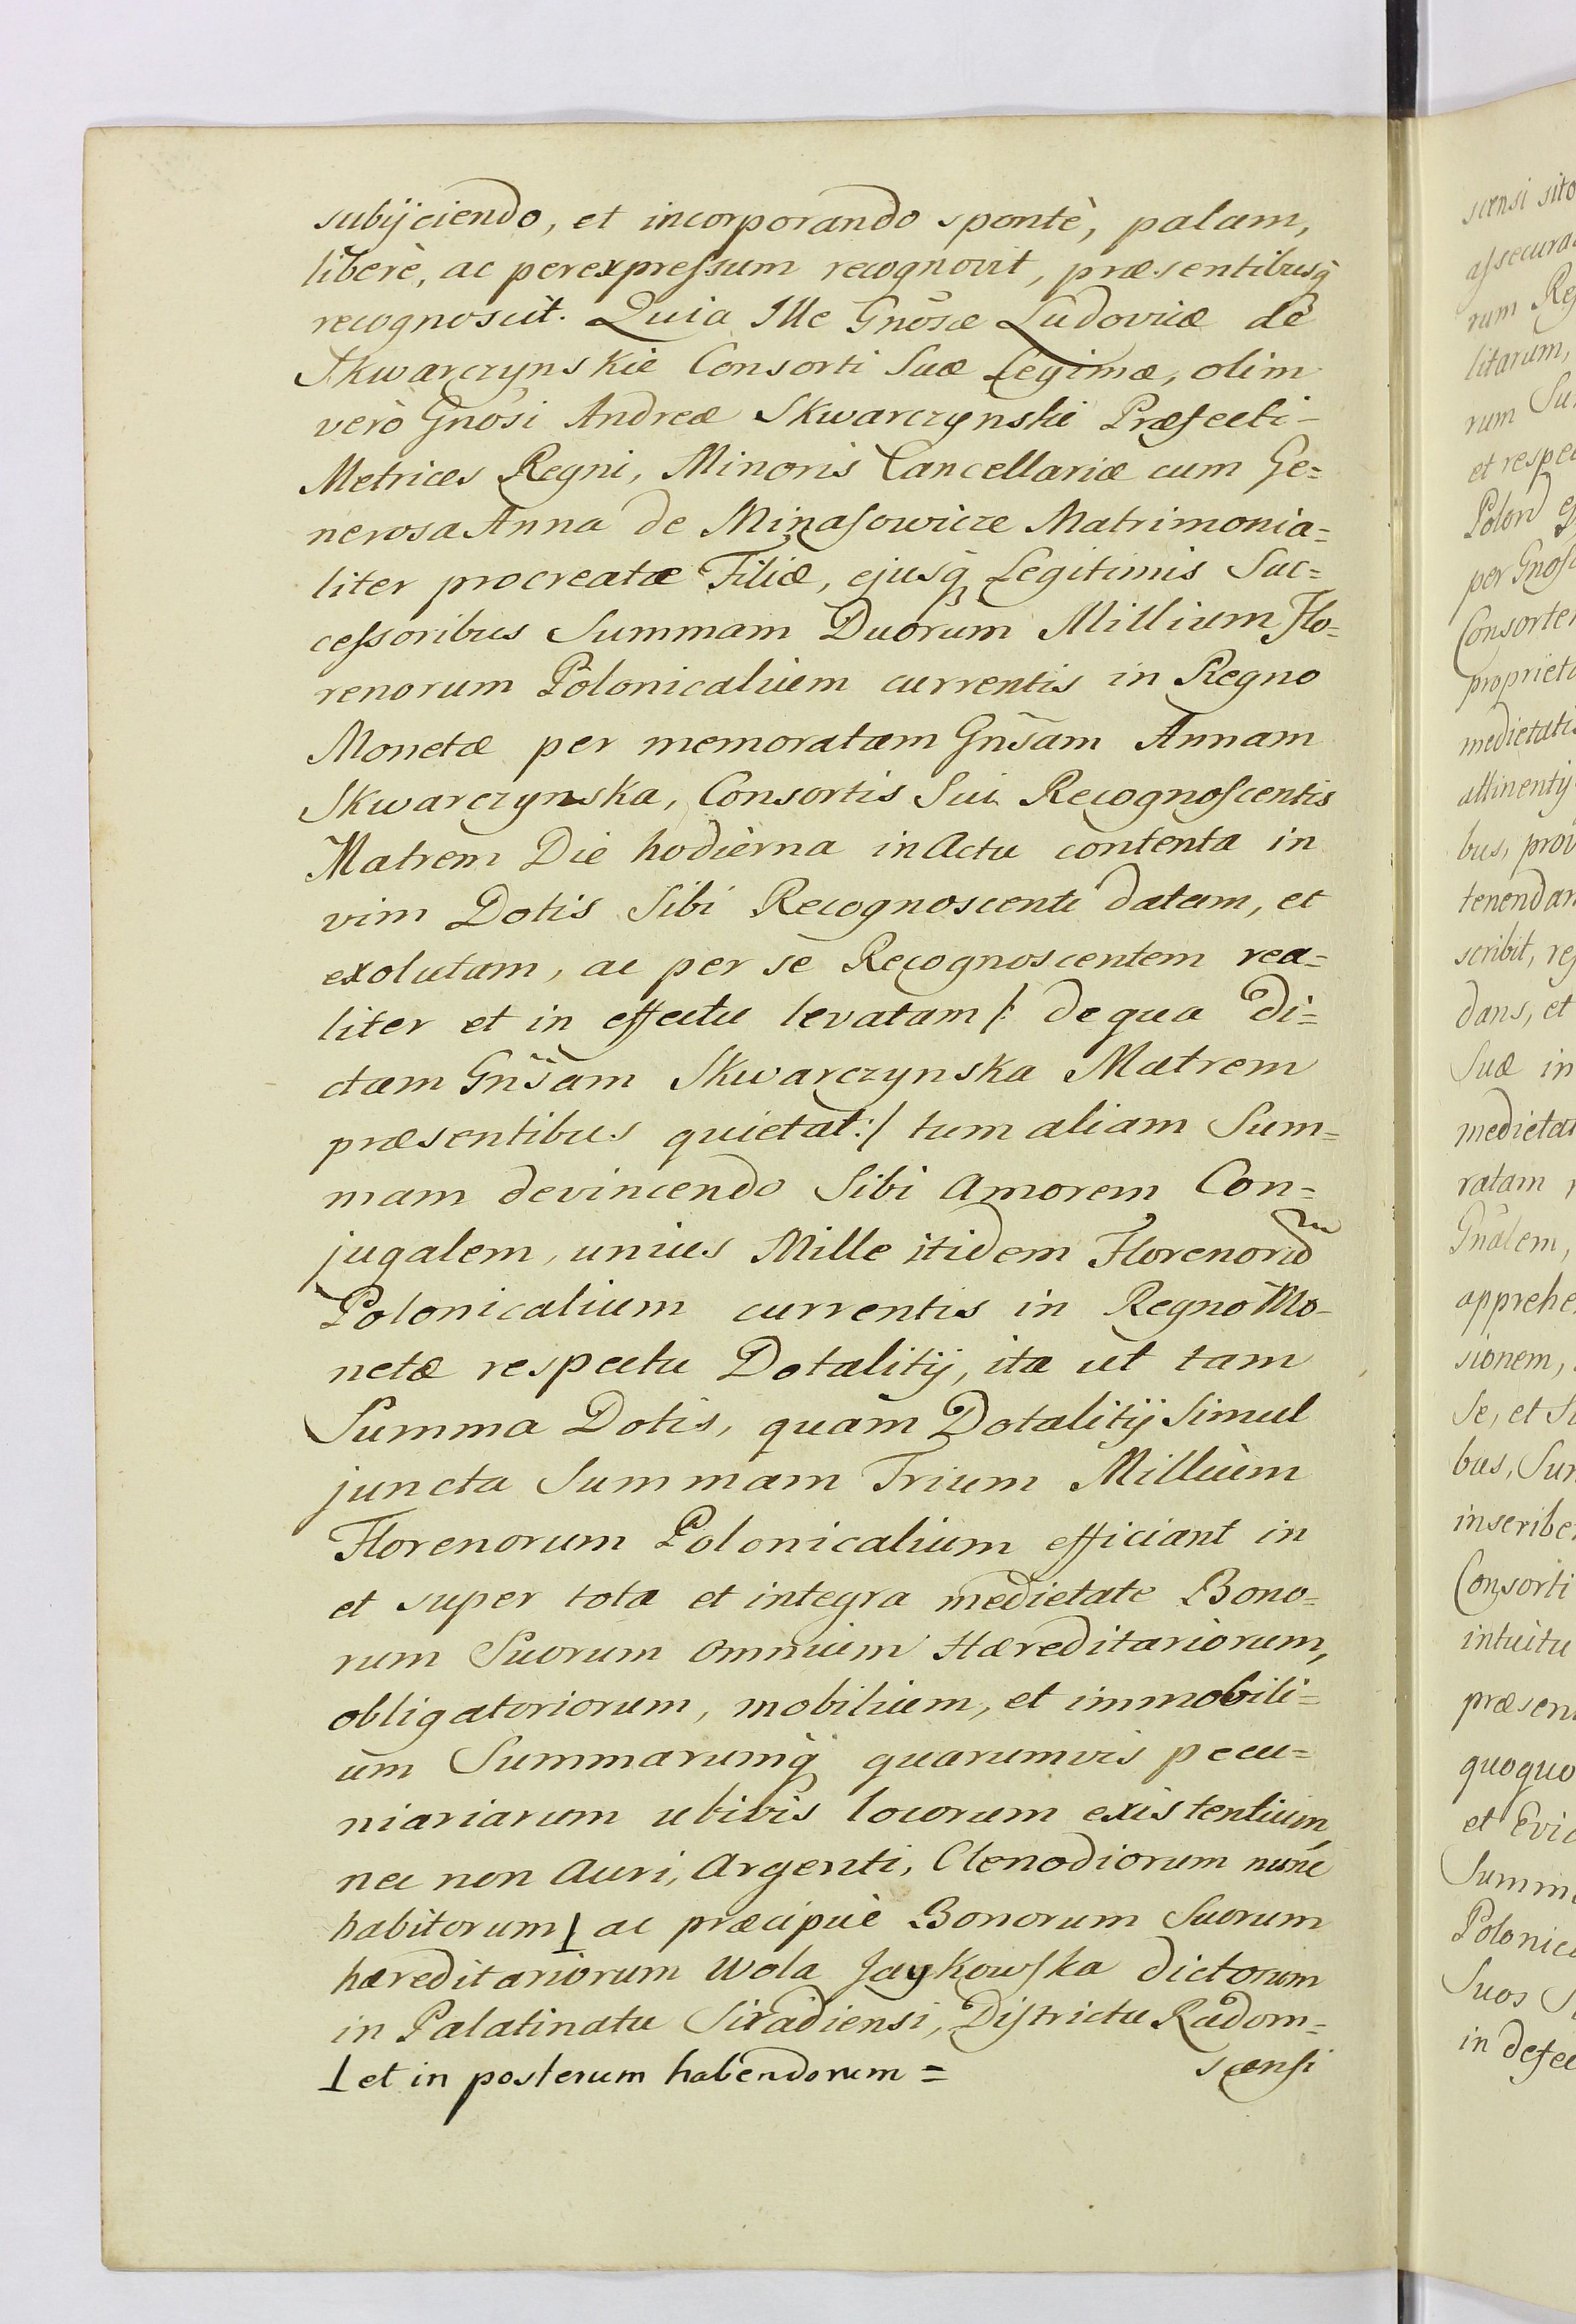 subijciendo, et incorporando spontè, palam,
liberè, ac perexpreſsum recognovit, præsentibusq̃
recognoscit. Quia Ille Gnõsæ Ludovicæ de
Skwarczynskie Consorti Suæ Legimæ, olim
verò Gnõsi Andreæ Skwarczynski Præfecti-
Metrices Regni, Minoris Cancellariæ cum Ge=
nerosa Anna de Minasowicze Matrimonia=
liter procreatæ Filiæ, ejusq̃ Legitimis Suc=
ceſsoribus Summam Duorum Millium Flo=
renorum Polonicalium currentis in Regno
Monetæ per memoratam Gnsam Annam
Skwarczynska, Consortis Sui Recognoſcentis
Matrem Die hodierna in Actu contenta in
vim Dotis Sibi Recognoscenti datam, et
exolutam, ac per se Recognoscentem rea=
liter et in effectu levatam /: de qua di=
ctam Gnsam Skwarczynska Matrem
præsentibus quietat :/ tum aliam Sum=
mam devincendo Sibi Amorem Con=
jugalem, unius Mille itidem Florenorum
Polonicalium currentis in Regno Mo-
netæ respectu Dotalitij, ita ut tam
Summa Dotis, quam Dotalitij Simul
juncta Summam Trium Millium
Florenorum Polonicalium efficiant in
et super tota et integra medietate Bono=
rum Suorum omnium Hæreditariorum,
obligatoriorum, mobilium, et immobili=
um Summarumq̃ quarumvis pecu=
niariarum ubivis locorum existentium,
nec non Auri, Argenti, Clenodiorum nunc
habitorum ⊥ ac præcipuè Bonorum Suorum
hæreditariorum Wola Jaykowſka dictorum
in Palatinatu Siradiensi, Diſtrictu Radom=
⊥ et in posterum habendorum = scensi
scensi sito
aſsecura
rum Reg
litarum,
rum Su
et respec
Polon
per Gnoſ
Consorte
proprieta
medietatis
attinentij
bus, prov
tenendar
scribit, re
dans, et
Suæ in
medieta
ratam
Gnãlem,
apprehe
sionem,
Se, et S
bus, Su
inscribe
Consorti
intuitu
præsen
quoquo
et Evi
Summ
Polonic
Suos S
in defec